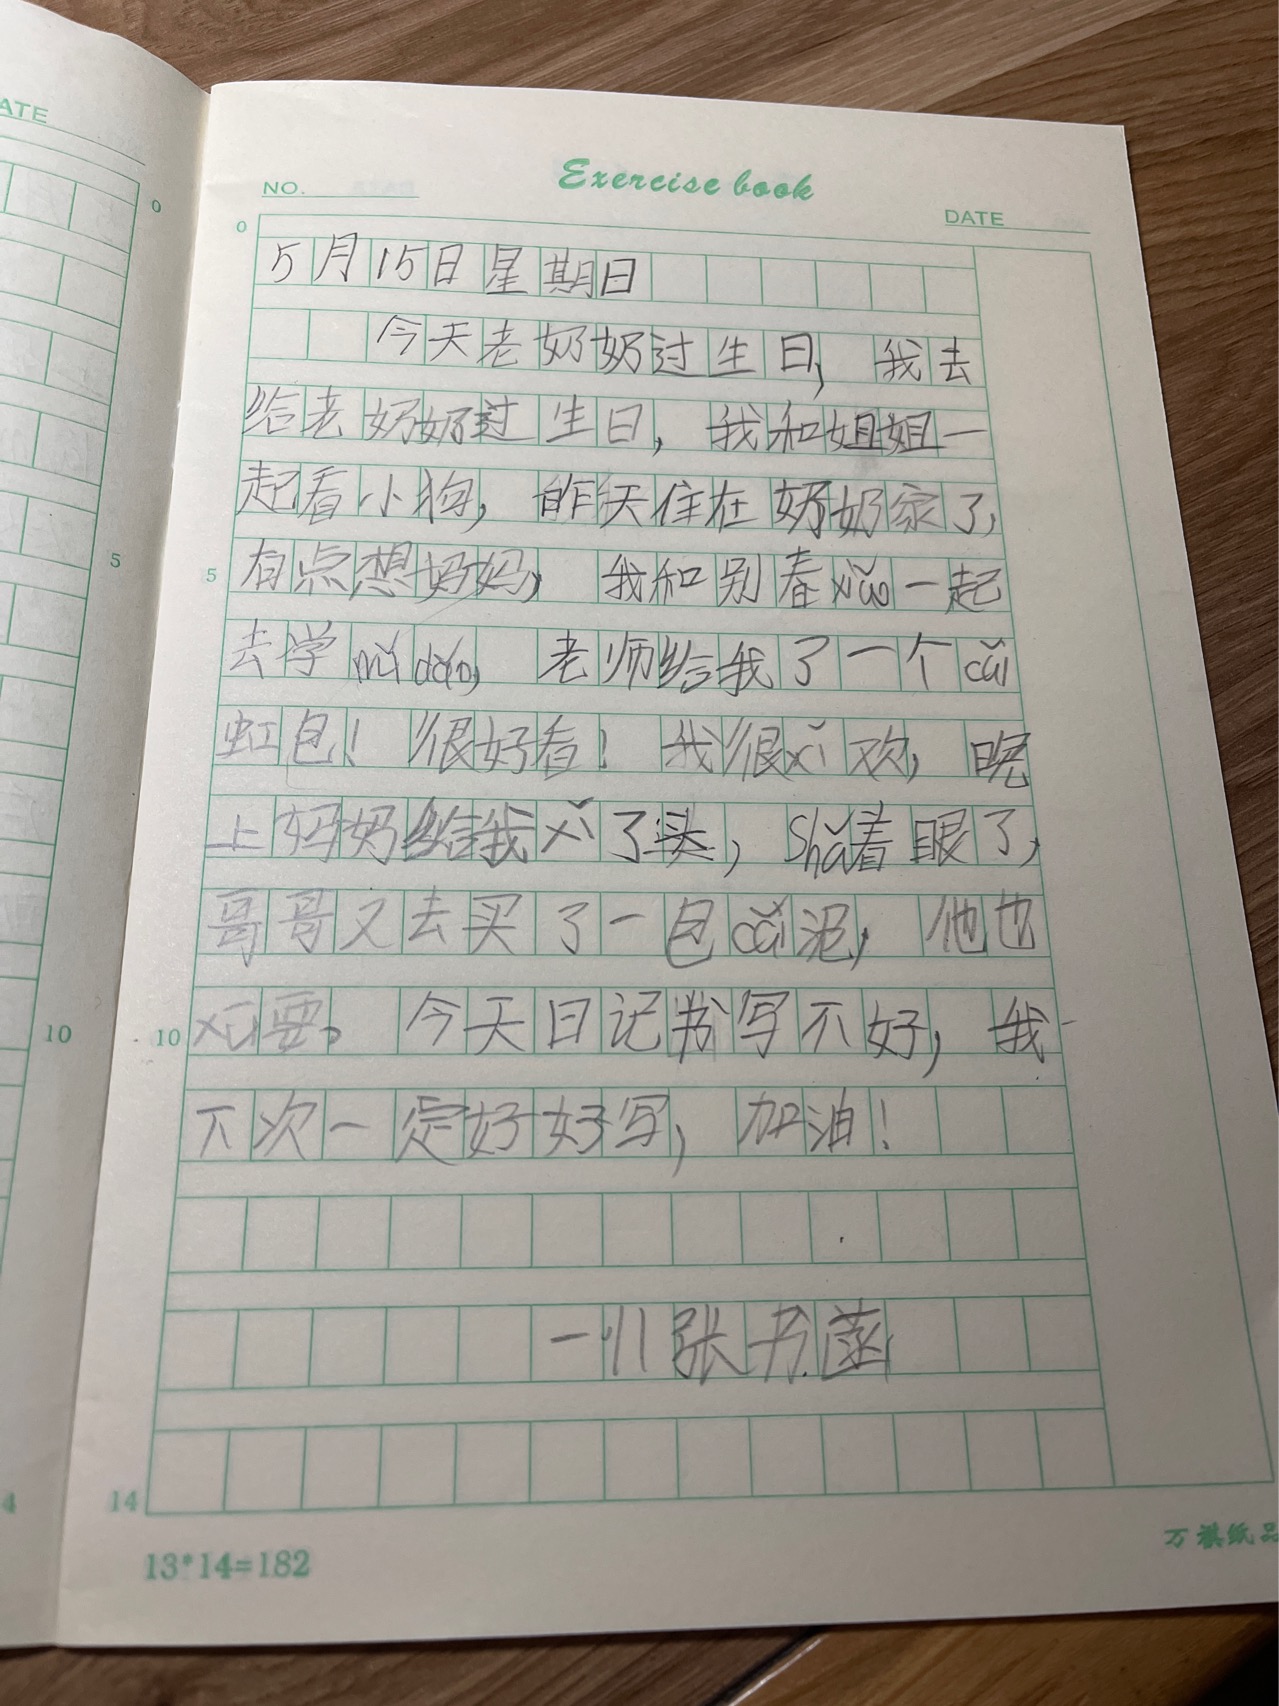 ATE
0
5
10
4
Exercise book
NO.
DATE
0
5月15日星期日
今天老奶奶过生日，我去
给老奶奶过生日，我和姐姐一
起看小狗，昨天住在奶奶家了，
5
有点想妈妈，我和别春xiǎo一起
去学 dǎo，老师给我了一个cǎi
虹包！很好看！我很xǐ欢，晚
上妈妈给我xǐ了头，shǎ着眼了，
哥哥又去买了一包cǎi泥，他也
10
要。今天日记书写不好，我
下次一定好好写，加油！
一川张书菡
14
13*14=182
万祺纸品